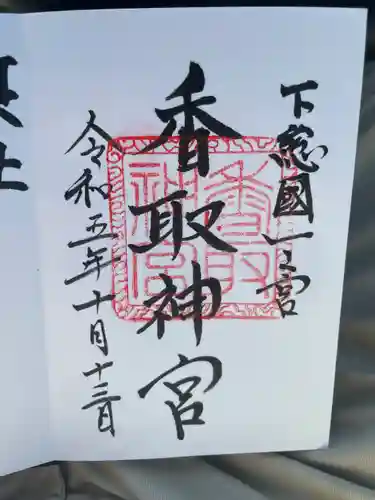 下総國一之宮
香取神宮
香取神宮
令和五年十月十三日